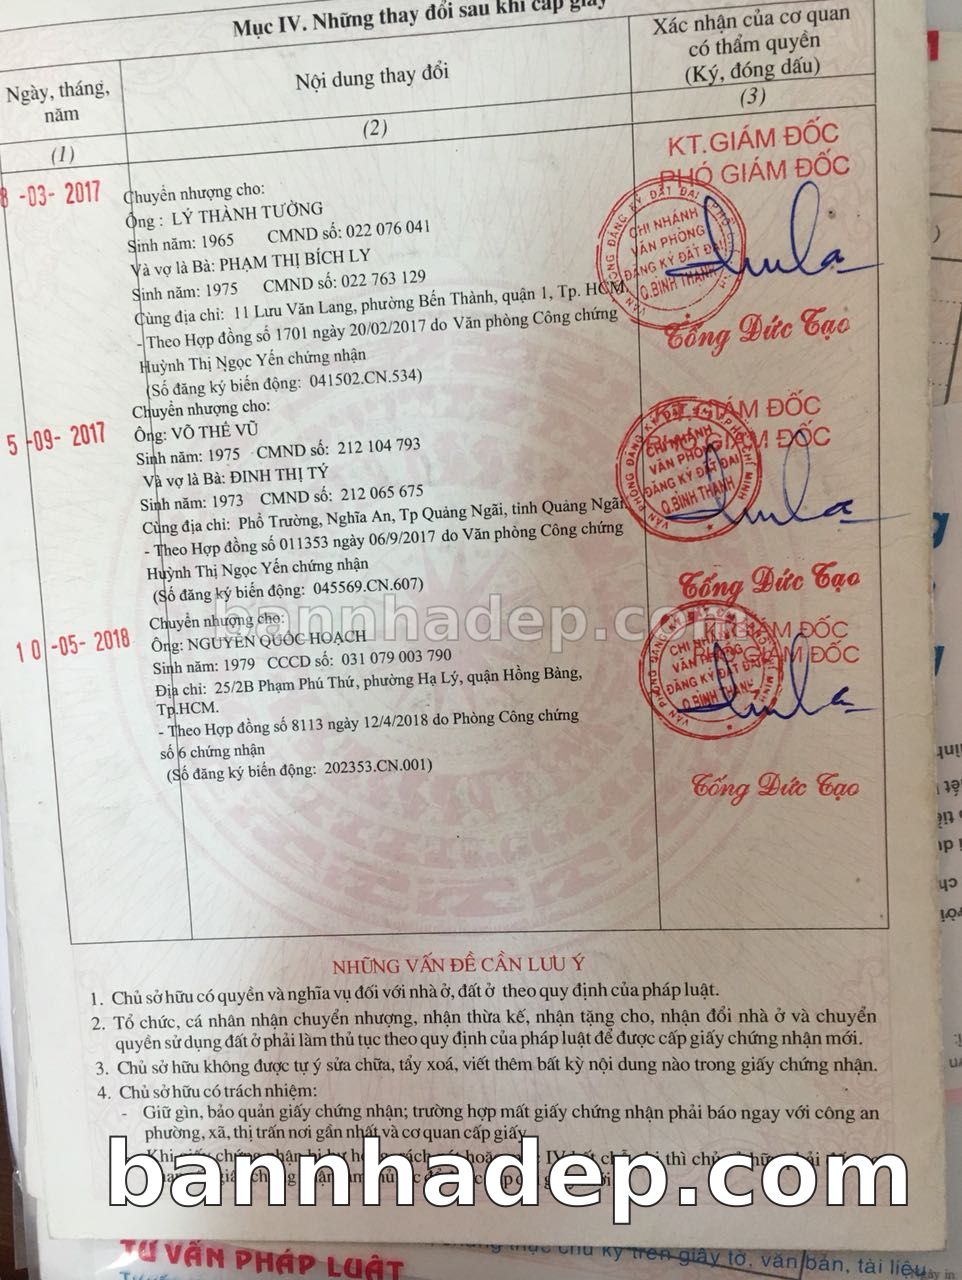 Mục IV. Những thay đổi sau khi cấp giấy
Ngày, tháng, năm
Nội dung thay đổi
Xác nhận của cơ quan
có thẩm quyền
(Ký, đóng dấu)
(1)
(2)
(3)
8 -03- 2017
Chuyển nhượng cho:
Ông : LÝ THÀNH TƯỜNG
Sinh năm: 1965 CMND số: 022 076 041
Và vợ là Bà: PHẠM THỊ BÍCH LY
Sinh năm: 1975 CMND số: 022 763 129
Cùng địa chỉ: 11 Lưu Văn Lang, phường Bến Thành, quận 1, Tp. HCM.
- Theo Hợp đồng số 1701 ngày 20/02/2017 do Văn phòng Công chứng
Huỳnh Thị Ngọc Yến chứng nhận
(Số đăng ký biến động: 041502.CN.534)
KT.GIÁM ĐỐC
PHÓ GIÁM ĐỐC
CHI NHÁNH
VĂN PHÒNG
ĐĂNG KÝ ĐẤT ĐAI
Q.BÌNH THẠNH
Tống Đức Tạo
5 -09- 2017
Chuyển nhượng cho:
Ông: VÕ THẾ VŨ
Sinh năm: 1975 CMND số: 212 104 793
Và vợ là Bà: ĐINH THỊ TÝ
Sinh năm: 1973 CMND số: 212 065 675
Cùng địa chỉ: Phổ Trường, Nghĩa An, Tp Quảng Ngãi, tỉnh Quảng Ngãi
- Theo Hợp đồng số 011353 ngày 06/9/2017 do Văn phòng Công chứng
Huỳnh Thị Ngọc Yến chứng nhận
(Số đăng ký biến động: 045569.CN.607)
GIÁM ĐỐC
PHÓ GIÁM ĐỐC
CHI NHÁNH
VĂN PHÒNG
ĐĂNG KÝ ĐẤT ĐAI
Q.BÌNH THẠNH
Tống Đức Tạo
bannhadep.com
10 -05- 2018
Chuyển nhượng cho:
Ông: NGUYỄN QUỐC HOẠCH
Sinh năm: 1979 CCCD số: 031 079 003 790
Địa chỉ: 25/2B Phạm Phú Thứ, phường Hạ Lý, quận Hồng Bàng,
Tp.HCM.
- Theo Hợp đồng số 8113 ngày 12/4/2018 do Phòng Công chứng
số 6 chứng nhận
(Số đăng ký biến động: 202353.CN.001)
GIÁM ĐỐC
PHÓ GIÁM ĐỐC
CHI NHÁNH
VĂN PHÒNG
ĐĂNG KÝ ĐẤT ĐAI
Q.BÌNH THẠNH
Tống Đức Tạo
NHỮNG VẤN ĐỀ CẦN LƯU Ý
1. Chủ sở hữu có quyền và nghĩa vụ đối với nhà ở, đất ở theo quy định của pháp luật.
2. Tổ chức, cá nhân nhận chuyển nhượng, nhận thừa kế, nhận tặng cho, nhận đổi nhà ở và chuyển
quyền sử dụng đất ở phải làm thủ tục theo quy định của pháp luật để được cấp giấy chứng nhận mới.
3. Chủ sở hữu không được tự ý sửa chữa, tẩy xoá, viết thêm bất kỳ nội dung nào trong giấy chứng nhận.
4. Chủ sở hữu có trách nhiệm:
- Giữ gìn, bảo quản giấy chứng nhận; trường hợp mất giấy chứng nhận phải báo ngay với công an
phường, xã, thị trấn nơi gần nhất và cơ quan cấp giấy.
bannhadep.com
TƯ VẤN PHÁP LUẬT
chữ ký trên giấy tờ, văn bản, tài liệu